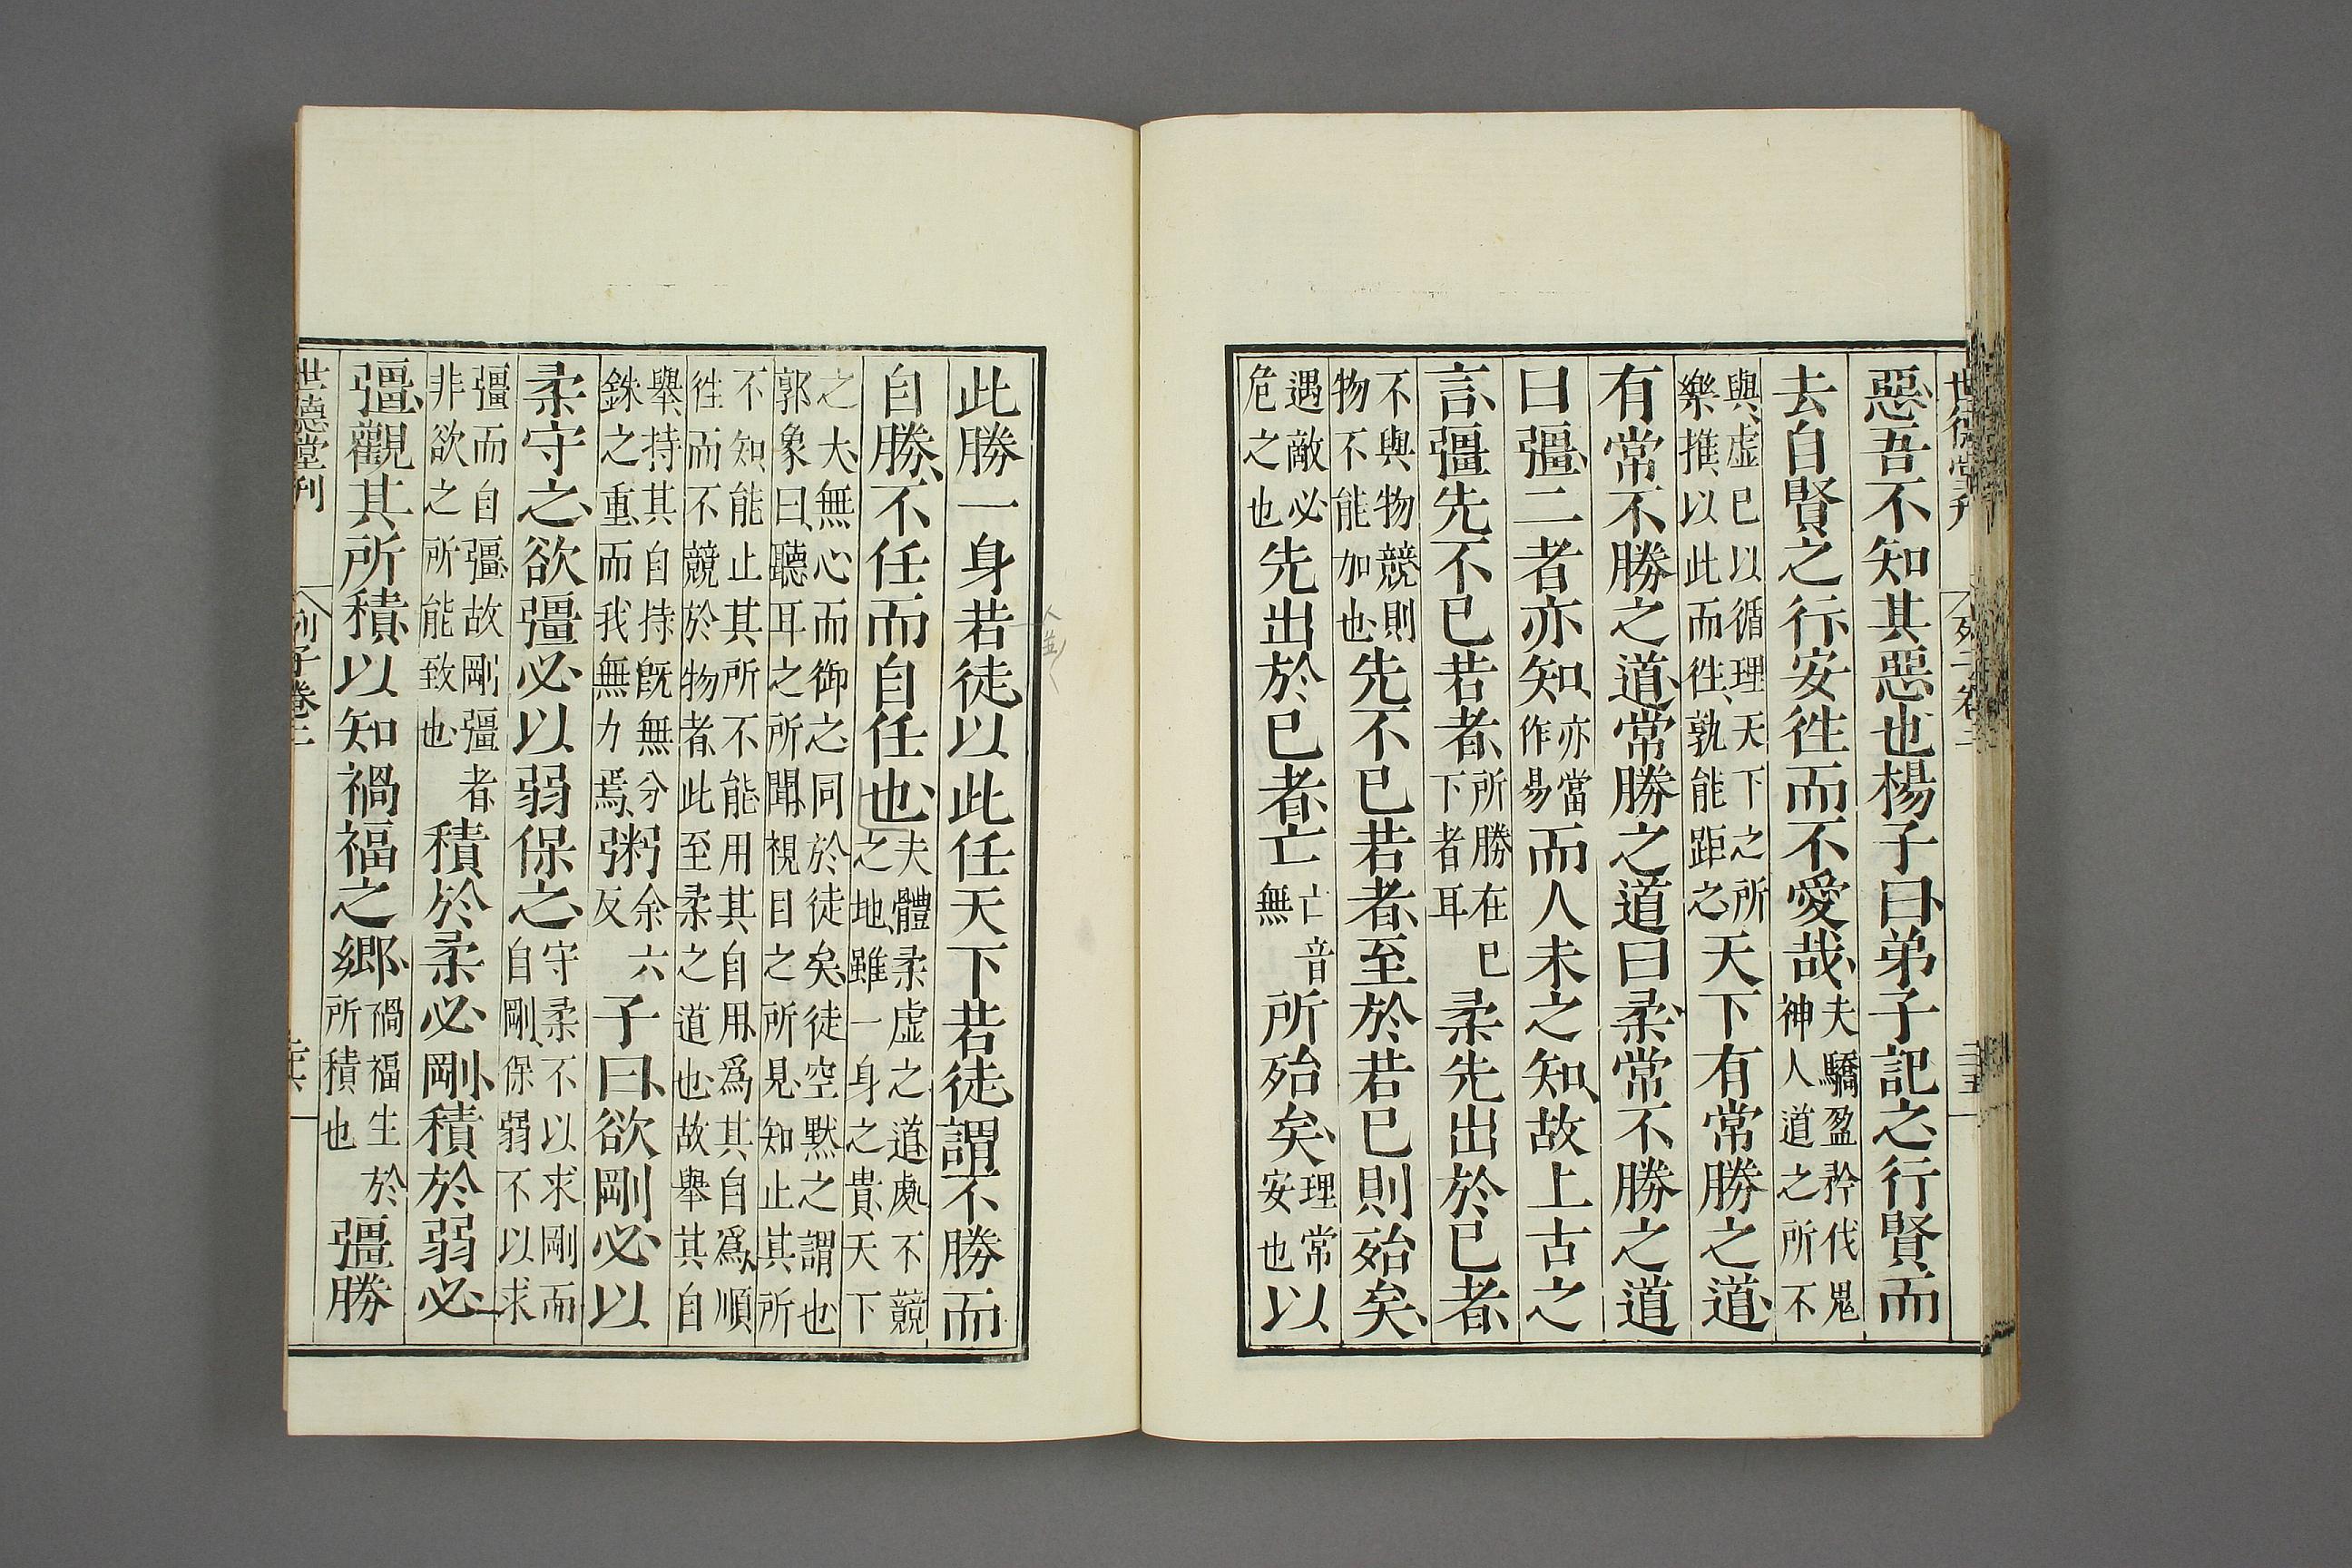 世德堂刊 列子卷二 二十五
惡吾不知其惡也楊子曰弟子記之行賢而
去自賢之行安徃而不愛哉夫驕盈矜伐鬼
神人道之所不
與虛已以循理天下之所
樂推以此而徃孰能距之天下有常勝之道
有常不勝之道常勝之道曰柔常不勝之道
曰彊二者亦知亦當
作易而人未之知故上古之
言彊先不已若者所勝在已
下者耳柔先出於已者
不與物競則
物不能加也先不已若者至於若已則殆矣
遇敵必
危之也先出於已者亡亡音
無所殆矣理常
安也以
此勝一身若徒以此任天下若徒謂不勝而
自勝不任而自任也夫體柔虛之道處不競
之地雖一身之貴天下
之大無心而御之同於徒矣徒空默之謂也
郭象曰聽耳之所聞視目之所見知止其所
不知能止其所不能用其自用爲其自爲順
徃而不競於物者此至柔之道也故舉其自
舉持其自持旣無分
銖之重而我無力焉粥余六
反子曰欲剛必以
柔守之欲彊必以弱保之守柔不以求剛而
自剛保弱不以求
彊而自彊故剛彊者
非欲之所能致也積於柔必剛積於弱必
彊觀其所積以知禍福之鄉禍福生於
所積也彊勝
世德堂刊 列子卷二 二十六